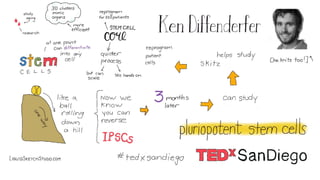 study
aging
research
3D clusters
mimic
organs
more
efficient
at one point
can differentiate
into any
cell
stem
CELLS
reprogram
for ES patients
STEM CELL
CORE
quicker
process
but can
scale
less hands on
Ken Diffenderfer
reprogram
patient
cells
helps study
skitz
(he knits too!)
like a
ball
rolling
down
a hill
Now we
know
you can
reverse
IPSCs
3 months
later
can study
pluriopotent stem cells
#tedxsandiego
TEDxSanDiego